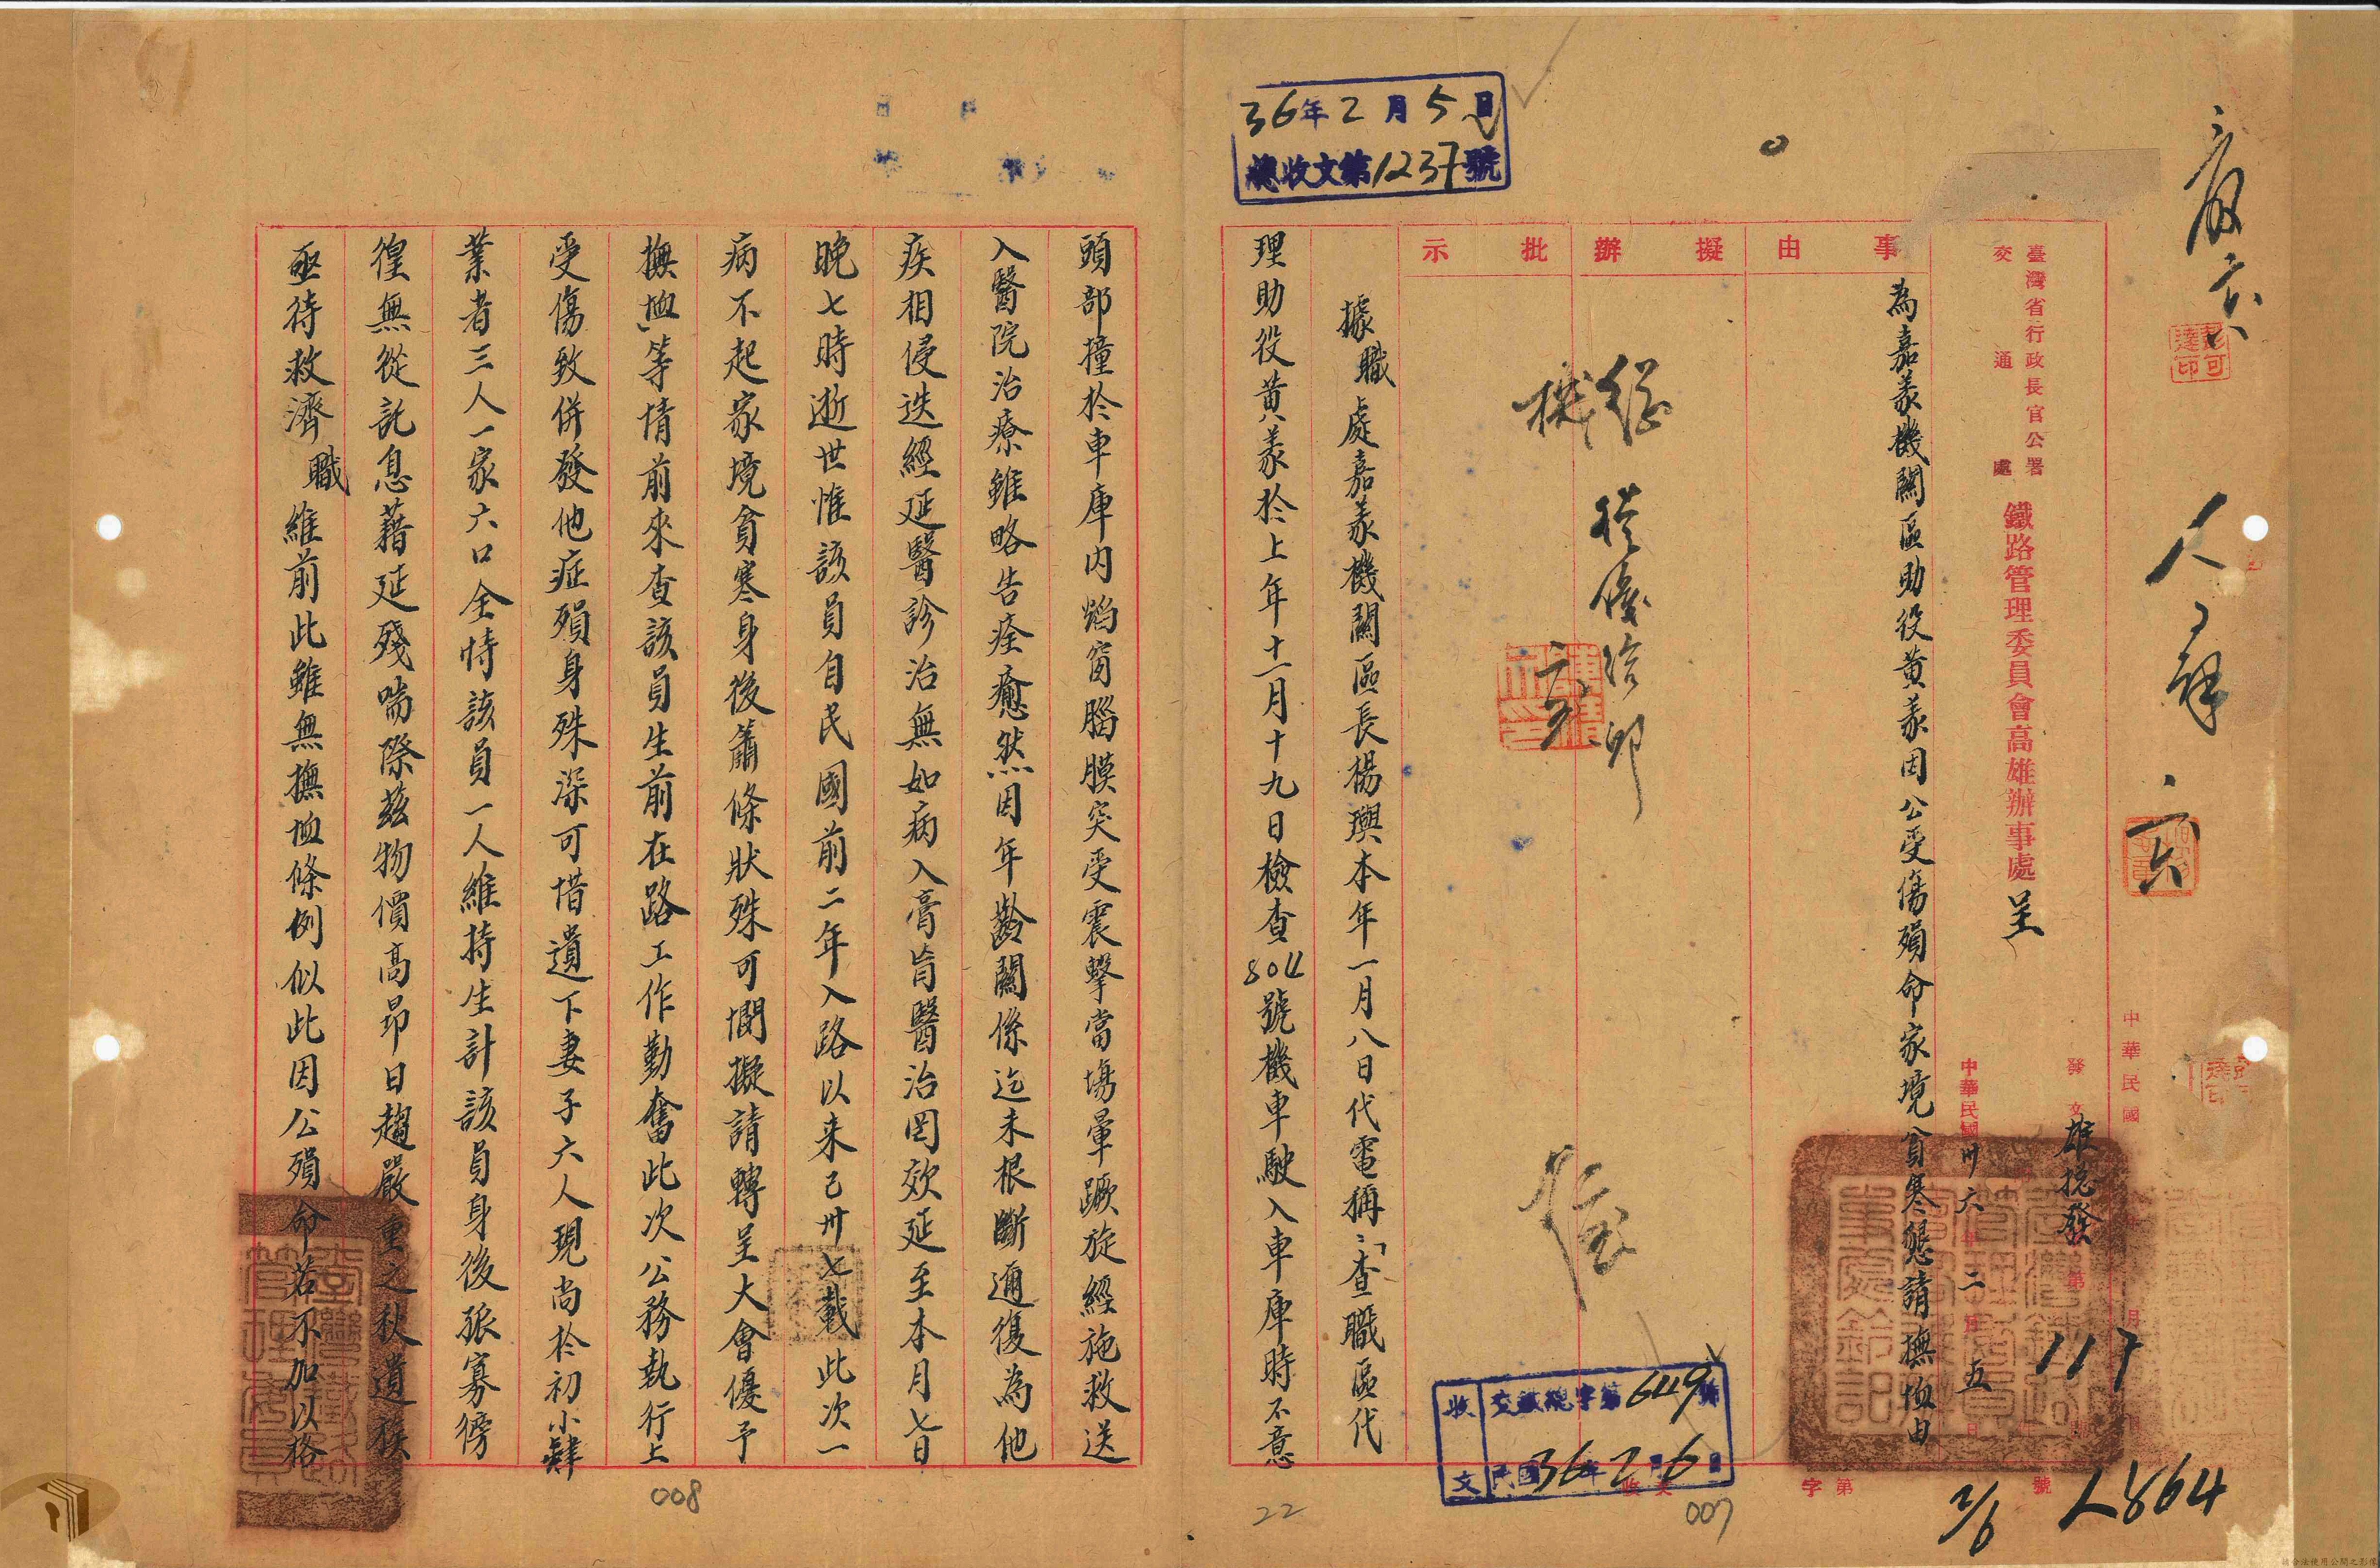 36年2月5日
總收文第1237號
臺灣省行政長官公署
交通處
鐵路管理委員會高雄辦事處 呈
中華民國
發文
雄總發
第
117
號
中華民國卅六年二月五日
2/6
人864
字第
事由
為嘉義機關區助役黃義因公受傷殞命家境貧寒懇請撫恤由
擬辦
批示
據職處嘉義機關區長楊璵本年一月八日代電稱:「查職區代
理助役黃義於上年十一月十九日檢查804號機車駛入車庫時不意
頭部撞於車庫內焰窗腦膜突受震擊當場暈蹶旋經施救送
入醫院治療雖略告痊癒然因年齡關係迄未根斷邇復為他
疾相侵迭經延醫診治無如病入膏肓醫治罔效延至本月七日
晚七時逝世惟該員自民國前二年入路以來已卅七載此次一
病不起家境貧寒身後蕭條狀殊可憫擬請轉呈大會優予
撫恤等情前來查該員生前在路工作勤奮此次公務執行上
受傷致併發他症殞身殊深可惜遺下妻子六人現尚於初小肆
業者三人一家六口全恃該員一人維持生計該員身後孤寡徬
徨無從託息藉延殘喘際茲物價高昂日趨嚴重之秋遺族
亟待救濟職維前此雖無撫恤條例似此因公殞命若不加以格
收文
交鐵總字第649號
民國36年2月6日
22
007
008